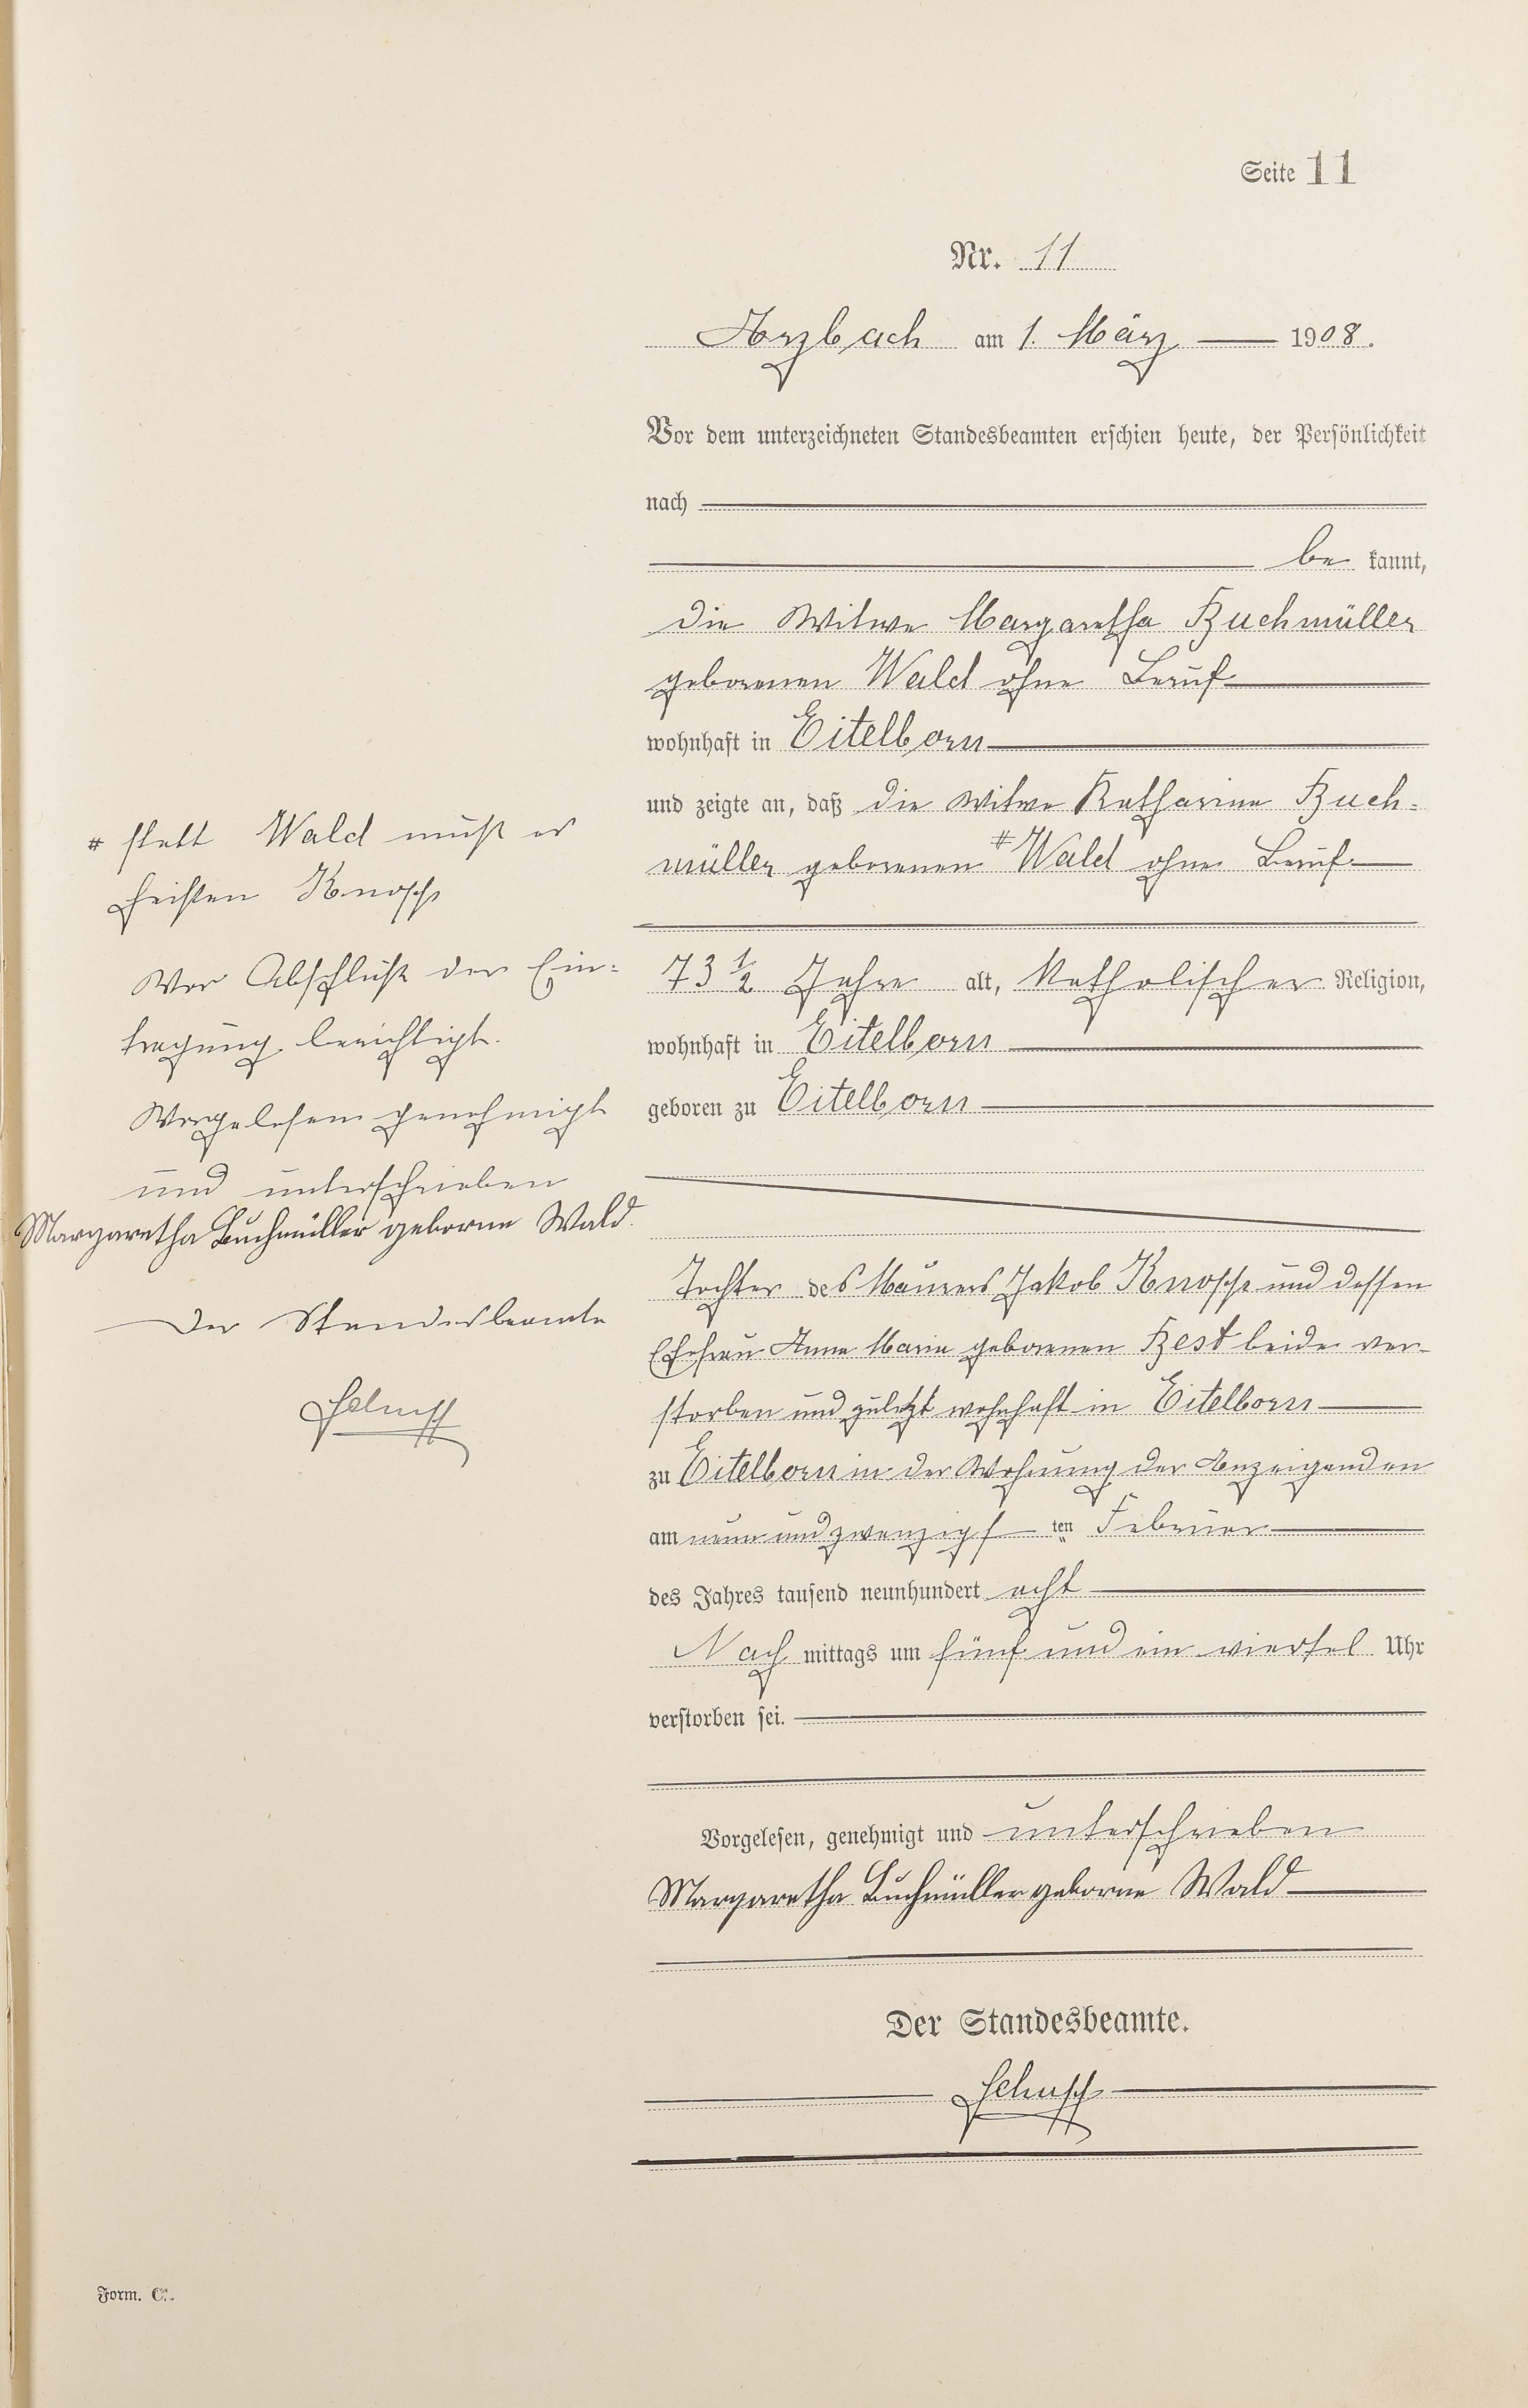 Seite 11
Nr. 11
Arzbach am 1. März 1908.
Vor dem unterzeichneten Standesbeamten erschien heute, der Persönlichkeit
nach
be kannt,
die Witwe Margaretha Buchmüller
geborenen Wald ohne Beruf
wohnhaft in Eitelborn
und zeigte an, daß die Witwe Katharina Buch-
müller geborenen # Wald ohne Beruf
73 1/2 Jahre alt, katholischer Religion,
wohnhaft in Eitelborn
geboren zu Eitelborn
Tochter des Maurers Jakob Knopp und dessen
Ehefrau Anna Maria geborenen Best beide ver-
storben und zuletzt wohnhaft in Eitelborn
zu Eitelborn in der Wohnung der Anzeigenden
am neun und zwanzigs ten Februar
des Jahres tausend neunhundert acht
Nach mittags um fünf und ein viertel Uhr
verstorben sei.
Vorgelesen, genehmigt und unterschrieben
Margaretha Buchmüller geborne Wald
Der Standesbeamte.
# statt Wald muß es
heißen Knopp
Vor Abschluß der Ein-
tragung berichtigt.
Vorgelesen genehmigt
und unterschrieben
Margaretha Buchmüller geborne Wald.
Der Standesbeamte
Form. C.